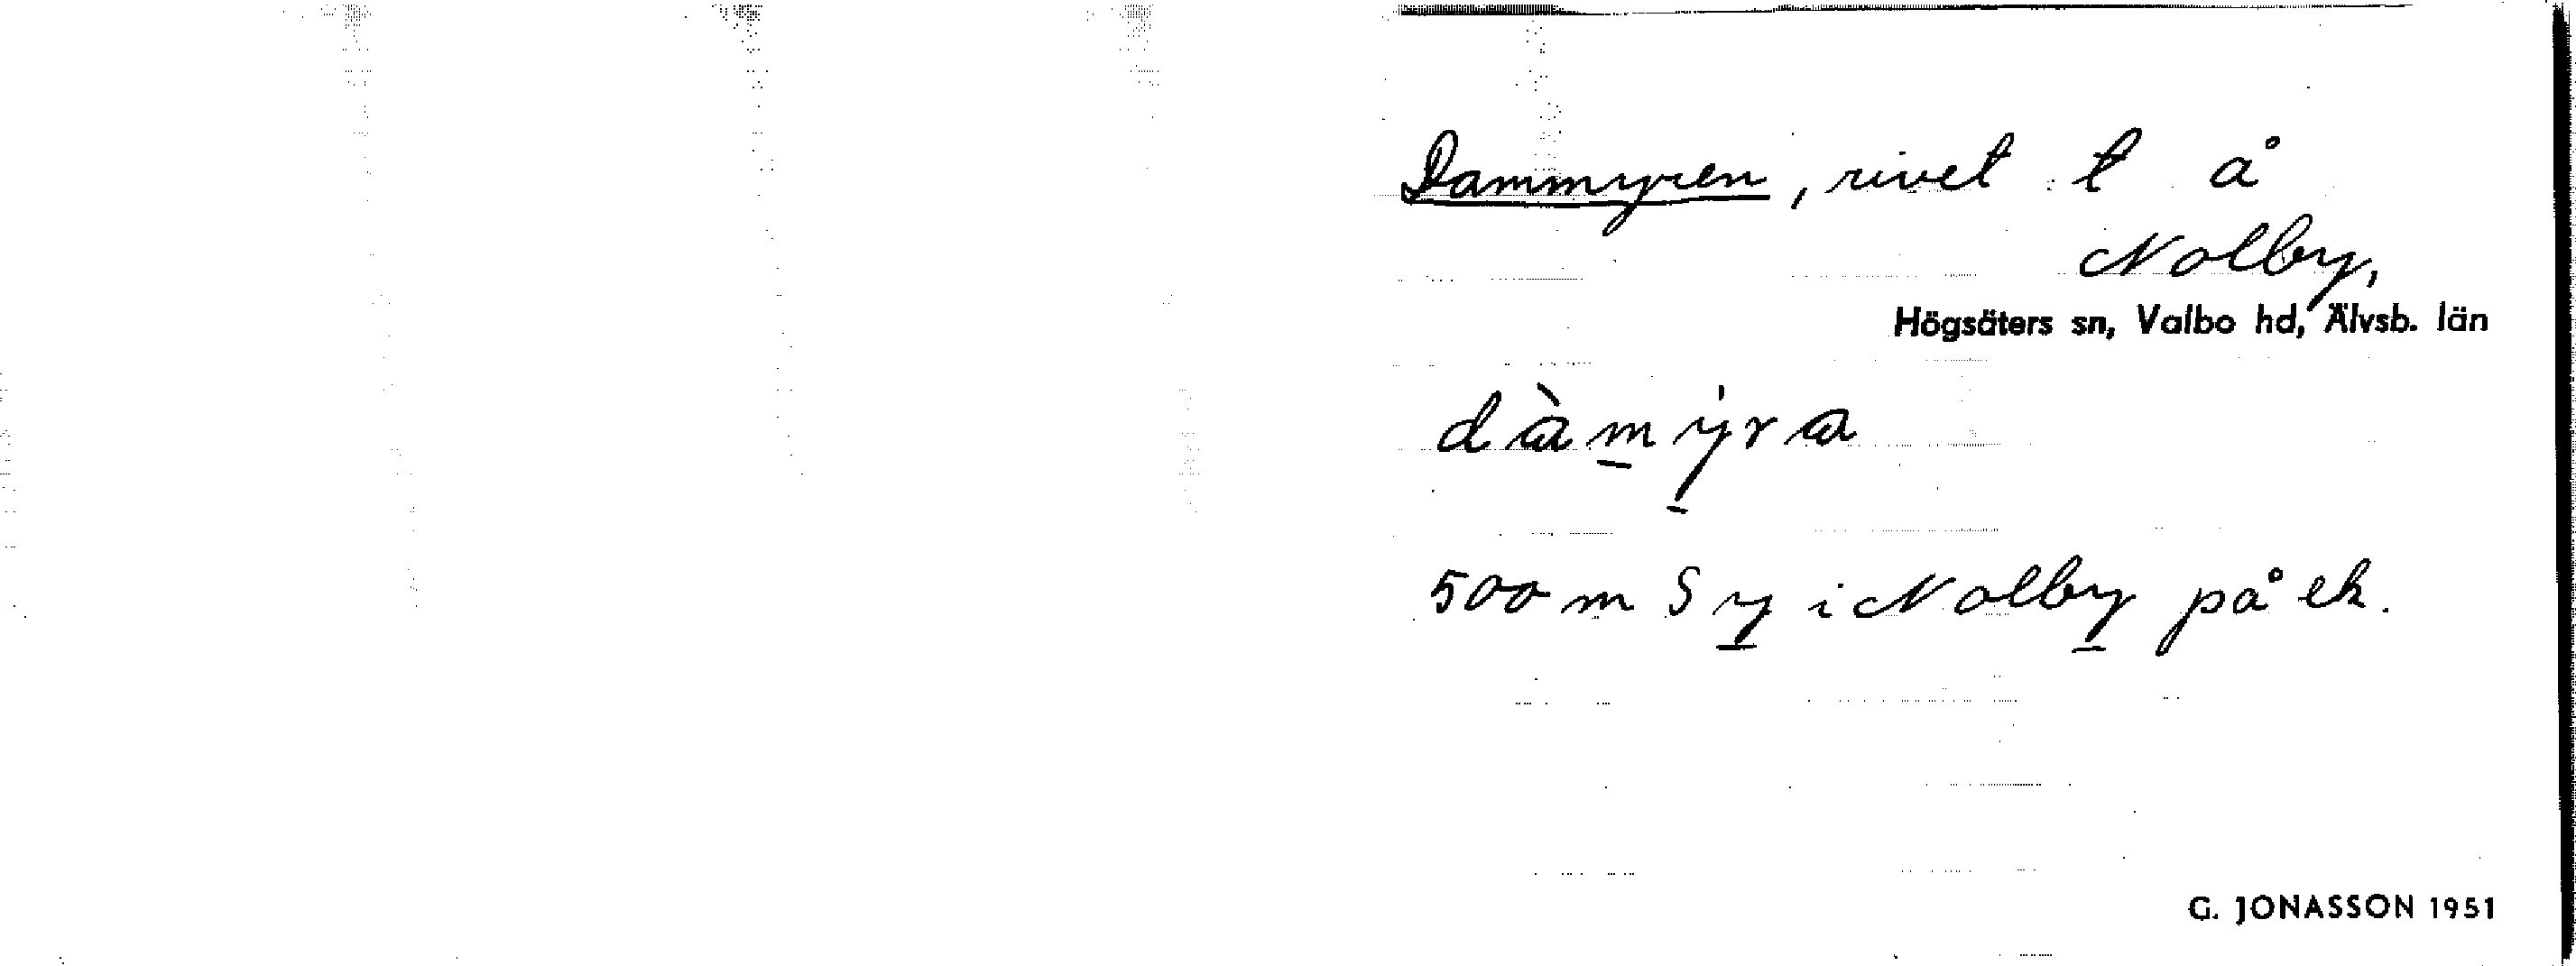 Dammyren, rivet t å
Nolby,
Högsäters sn, Valbo hd, Älvsb. län
dàmýra
500 m S y i Nolby på ek.
G. JONASSON 1951